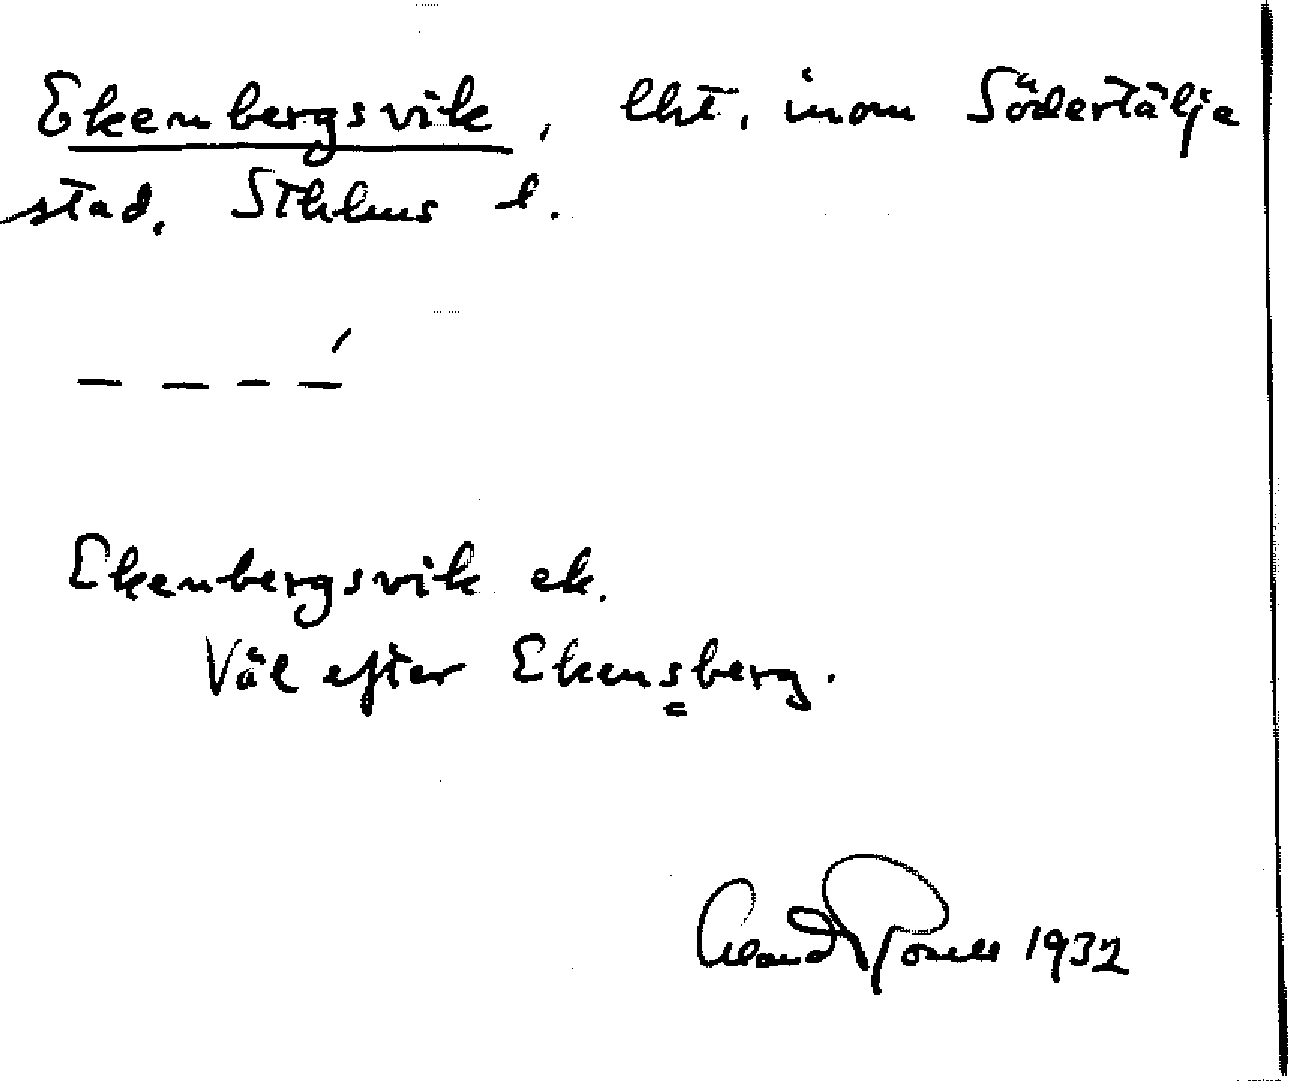 Ekenbergsvik, lht. inom Södertälje
stad. Sthlms l.
– – – –́
Ekenbergsvik ek.
Väl efter Ekensberg.
1932